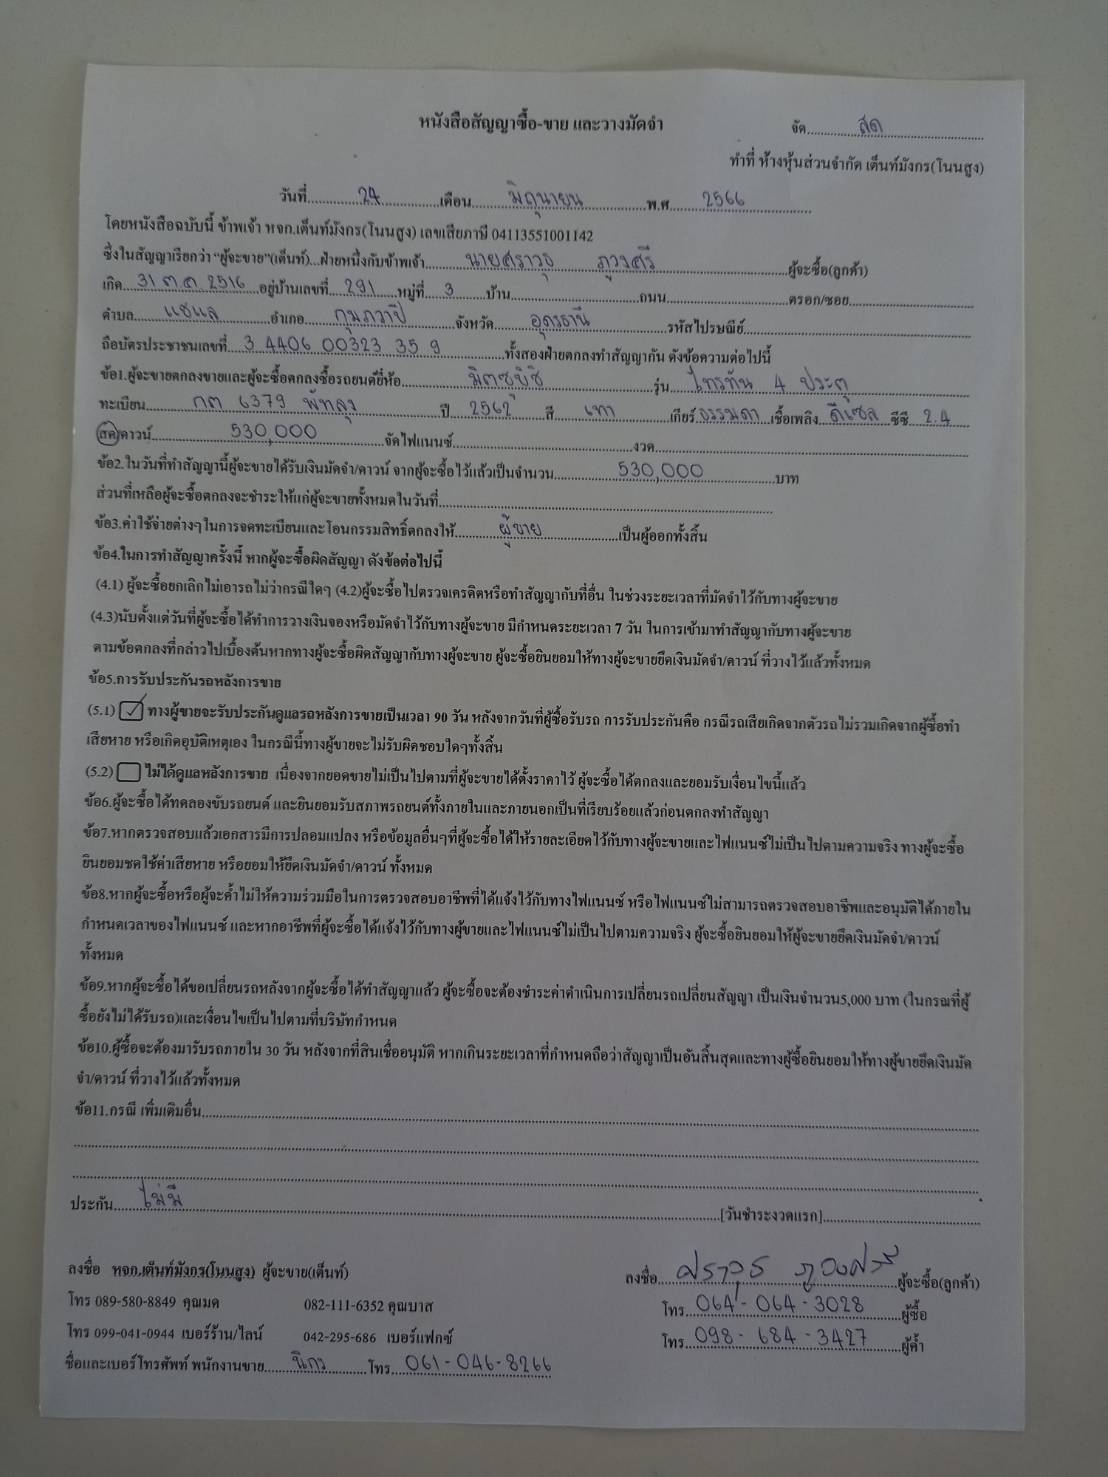 หนังสือสัญญาซื้อ-ขาย และวางมัดจำ
จัด สด
ทำที่ ห้างหุ้นส่วนจำกัด เต็นท์มังกร(โนนสูง)
วันที่ 24 เดือน มิถุนายน พ.ศ. 2566
โดยหนังสือฉบับนี้ ข้าพเจ้า หจก.เต็นท์มังกร(โนนสูง) เลขเสียภาษี 04113551001142
ซึ่งในสัญญาเรียกว่า “ผู้จะขาย”(เต็นท์)...ฝ่ายหนึ่งกับข้าพเจ้า นายศราวุธ ภูวงศรี ผู้จะซื้อ(ลูกค้า)
เกิด 31 ต.ค 2516 อยู่บ้านเลขที่ 291 หมู่ที่ 3 บ้าน ถนน ตรอก/ซอย
ตำบล แชแล อำเภอ กุมภวาปี จังหวัด อุดรธานี รหัสไปรษณีย์
ถือบัตรประชาชนเลขที่ 3 4406 00323 35 9 ทั้งสองฝ่ายตกลงทำสัญญากัน ดังข้อความต่อไปนี้
ข้อ1.ผู้จะขายตกลงขายและผู้จะซื้อตกลงซื้อรถยนต์ยี่ห้อ มิตซูบิชิ รุ่น ไทรทัน 4 ประตู
ทะเบียน กต 6379 พัทลุง ปี 2562 สี เทา เกียร์ ธรรมดา เชื้อเพลิง ดีเซล ซีซี 2.4
สด/ดาวน์ 530,000 จัดไฟแนนซ์ งวด
ข้อ2.ในวันที่ทำสัญญานี้ผู้จะขายได้รับเงินมัดจำ/ดาวน์ จากผู้จะซื้อไว้แล้วเป็นจำนวน 530,000 บาท
ส่วนที่เหลือผู้จะซื้อตกลงจะชำระให้แก่ผู้จะขายทั้งหมดในวันที่
ข้อ3.ค่าใช้จ่ายต่างๆในการจดทะเบียนและโอนกรรมสิทธิ์ตกลงให้ ผู้ขาย เป็นผู้ออกทั้งสิ้น
ข้อ4.ในการทำสัญญาครั้งนี้ หากผู้จะซื้อผิดสัญญา ดังข้อต่อไปนี้
(4.1) ผู้จะซื้อยกเลิกไม่เอารถไม่ว่ากรณีใดๆ (4.2)ผู้จะซื้อไปตรวจเครดิตหรือทำสัญญากับที่อื่น ในช่วงระยะเวลาที่มัดจำไว้กับทางผู้จะขาย
(4.3)นับตั้งแต่วันที่ผู้จะซื้อได้ทำการวางเงินจองหรือมัดจำไว้กับทางผู้จะขาย มีกำหนดระยะเวลา 7 วัน ในการเข้ามาทำสัญญากับทางผู้จะขาย
ตามข้อตกลงที่กล่าวไปเบื้องต้นหากทางผู้จะซื้อผิดสัญญากับทางผู้จะขาย ผู้จะซื้อยินยอมให้ทางผู้จะขายยึดเงินมัดจำ/ดาวน์ ที่วางไว้แล้วทั้งหมด
ข้อ5.การรับประกันรถหลังการขาย
(5.1) ✓ ทางผู้ขายจะรับประกันดูแลรถหลังการขายเป็นเวลา 90 วัน หลังจากวันที่ผู้ซื้อรับรถ การรับประกันคือ กรณีรถเสียเกิดจากตัวรถไม่รวมเกิดจากผู้ซื้อทำ
เสียหาย หรือเกิดอุบัติเหตุเอง ในกรณีนี้ทางผู้ขายจะไม่รับผิดชอบใดๆทั้งสิ้น
(5.2) ไม่ได้ดูแลหลังการขาย เนื่องจากยอดขายไม่เป็นไปตามที่ผู้จะขายได้ตั้งราคาไว้ ผู้จะซื้อได้ตกลงและยอมรับเงื่อนไขนี้แล้ว
ข้อ6.ผู้จะซื้อได้ทดลองขับรถยนต์ และยินยอมรับสภาพรถยนต์ทั้งภายในและภายนอกเป็นที่เรียบร้อยแล้วก่อนตกลงทำสัญญา
ข้อ7.หากตรวจสอบแล้วเอกสารมีการปลอมแปลง หรือข้อมูลอื่นๆที่ผู้จะซื้อได้ให้รายละเอียดไว้กับทางผู้จะขายและไฟแนนซ์ไม่เป็นไปตามความจริง ทางผู้จะซื้อ
ยินยอมชดใช้ค่าเสียหาย หรือยอมให้ยึดเงินมัดจำ/ดาวน์ ทั้งหมด
ข้อ8.หากผู้จะซื้อหรือผู้จะค้ำไม่ให้ความร่วมมือในการตรวจสอบอาชีพที่ได้แจ้งไว้กับทางไฟแนนซ์ หรือไฟแนนซ์ไม่สามารถตรวจสอบอาชีพและอนุมัติได้ภายใน
กำหนดเวลาของไฟแนนซ์ และหากอาชีพที่ผู้จะซื้อได้แจ้งไว้กับทางผู้ขายและไฟแนนซ์ไม่เป็นไปตามความจริง ผู้จะซื้อยินยอมให้ผู้จะขายยึดเงินมัดจำ/ดาวน์
ทั้งหมด
ข้อ9.หากผู้จะซื้อได้ขอเปลี่ยนรถหลังจากผู้จะซื้อได้ทำสัญญาแล้ว ผู้จะซื้อจะต้องชำระค่าดำเนินการเปลี่ยนรถเปลี่ยนสัญญา เป็นเงินจำนวน5,000 บาท (ในกรณที่ผู้
ซื้อยังไม่ได้รับรถ)และเงื่อนไขเป็นไปตามที่บริษัทกำหนด
ข้อ10.ผู้ซื้อจะต้องมารับรถภายใน 30 วัน หลังจากที่สินเชื่ออนุมัติ หากเกินระยะเวลาที่กำหนดถือว่าสัญญาเป็นอันสิ้นสุดและทางผู้ซื้อยินยอมให้ทางผู้ขายยึดเงินมัด
จำ/ดาวน์ ที่วางไว้แล้วทั้งหมด
ข้อ11.กรณี เพิ่มเติมอื่น
ประกัน ไม่มี [วันชำระงวดแรก]
ลงชื่อ หจก.เต็นท์มังกร(โนนสูง) ผู้จะขาย(เต็นท์)
ลงชื่อ ศราวุธ ภูวงศรี ผู้จะซื้อ(ลูกค้า)
โทร 089-580-8849 คุณมด 082-111-6352 คุณบาส
โทร 064-064-3028 ผู้ซื้อ
โทร 099-041-0944 เบอร์ร้าน/ไลน์ 042-295-686 เบอร์แฟกซ์
โทร 098-684-3427 ผู้ค้ำ
ชื่อและเบอร์โทรศัพท์ พนักงานขาย นิกร โทร 061-046-8266